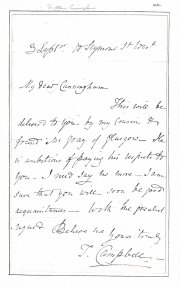 To Allan Cunningham
3 Sept 10 Seymour St West
My dear Cunningham
This will be
delivered to you by my Cousin &
friend Mr Gray of Glasgow – He
is ambitious of paying his respects to
you – I need say no more – I am
sure that you will soon be good
acquaintances – With the greatest
regard Believe me
yours truly
T. Campbell